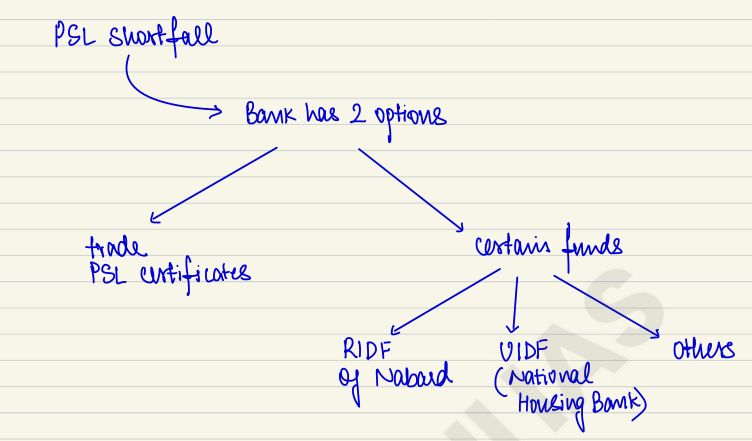 PSL shortfall
Bank has 2 options
trade
PSL certificates
certain funds
RIDF
of Nabard
UIDF
(National
Housing Bank)
others
IAS